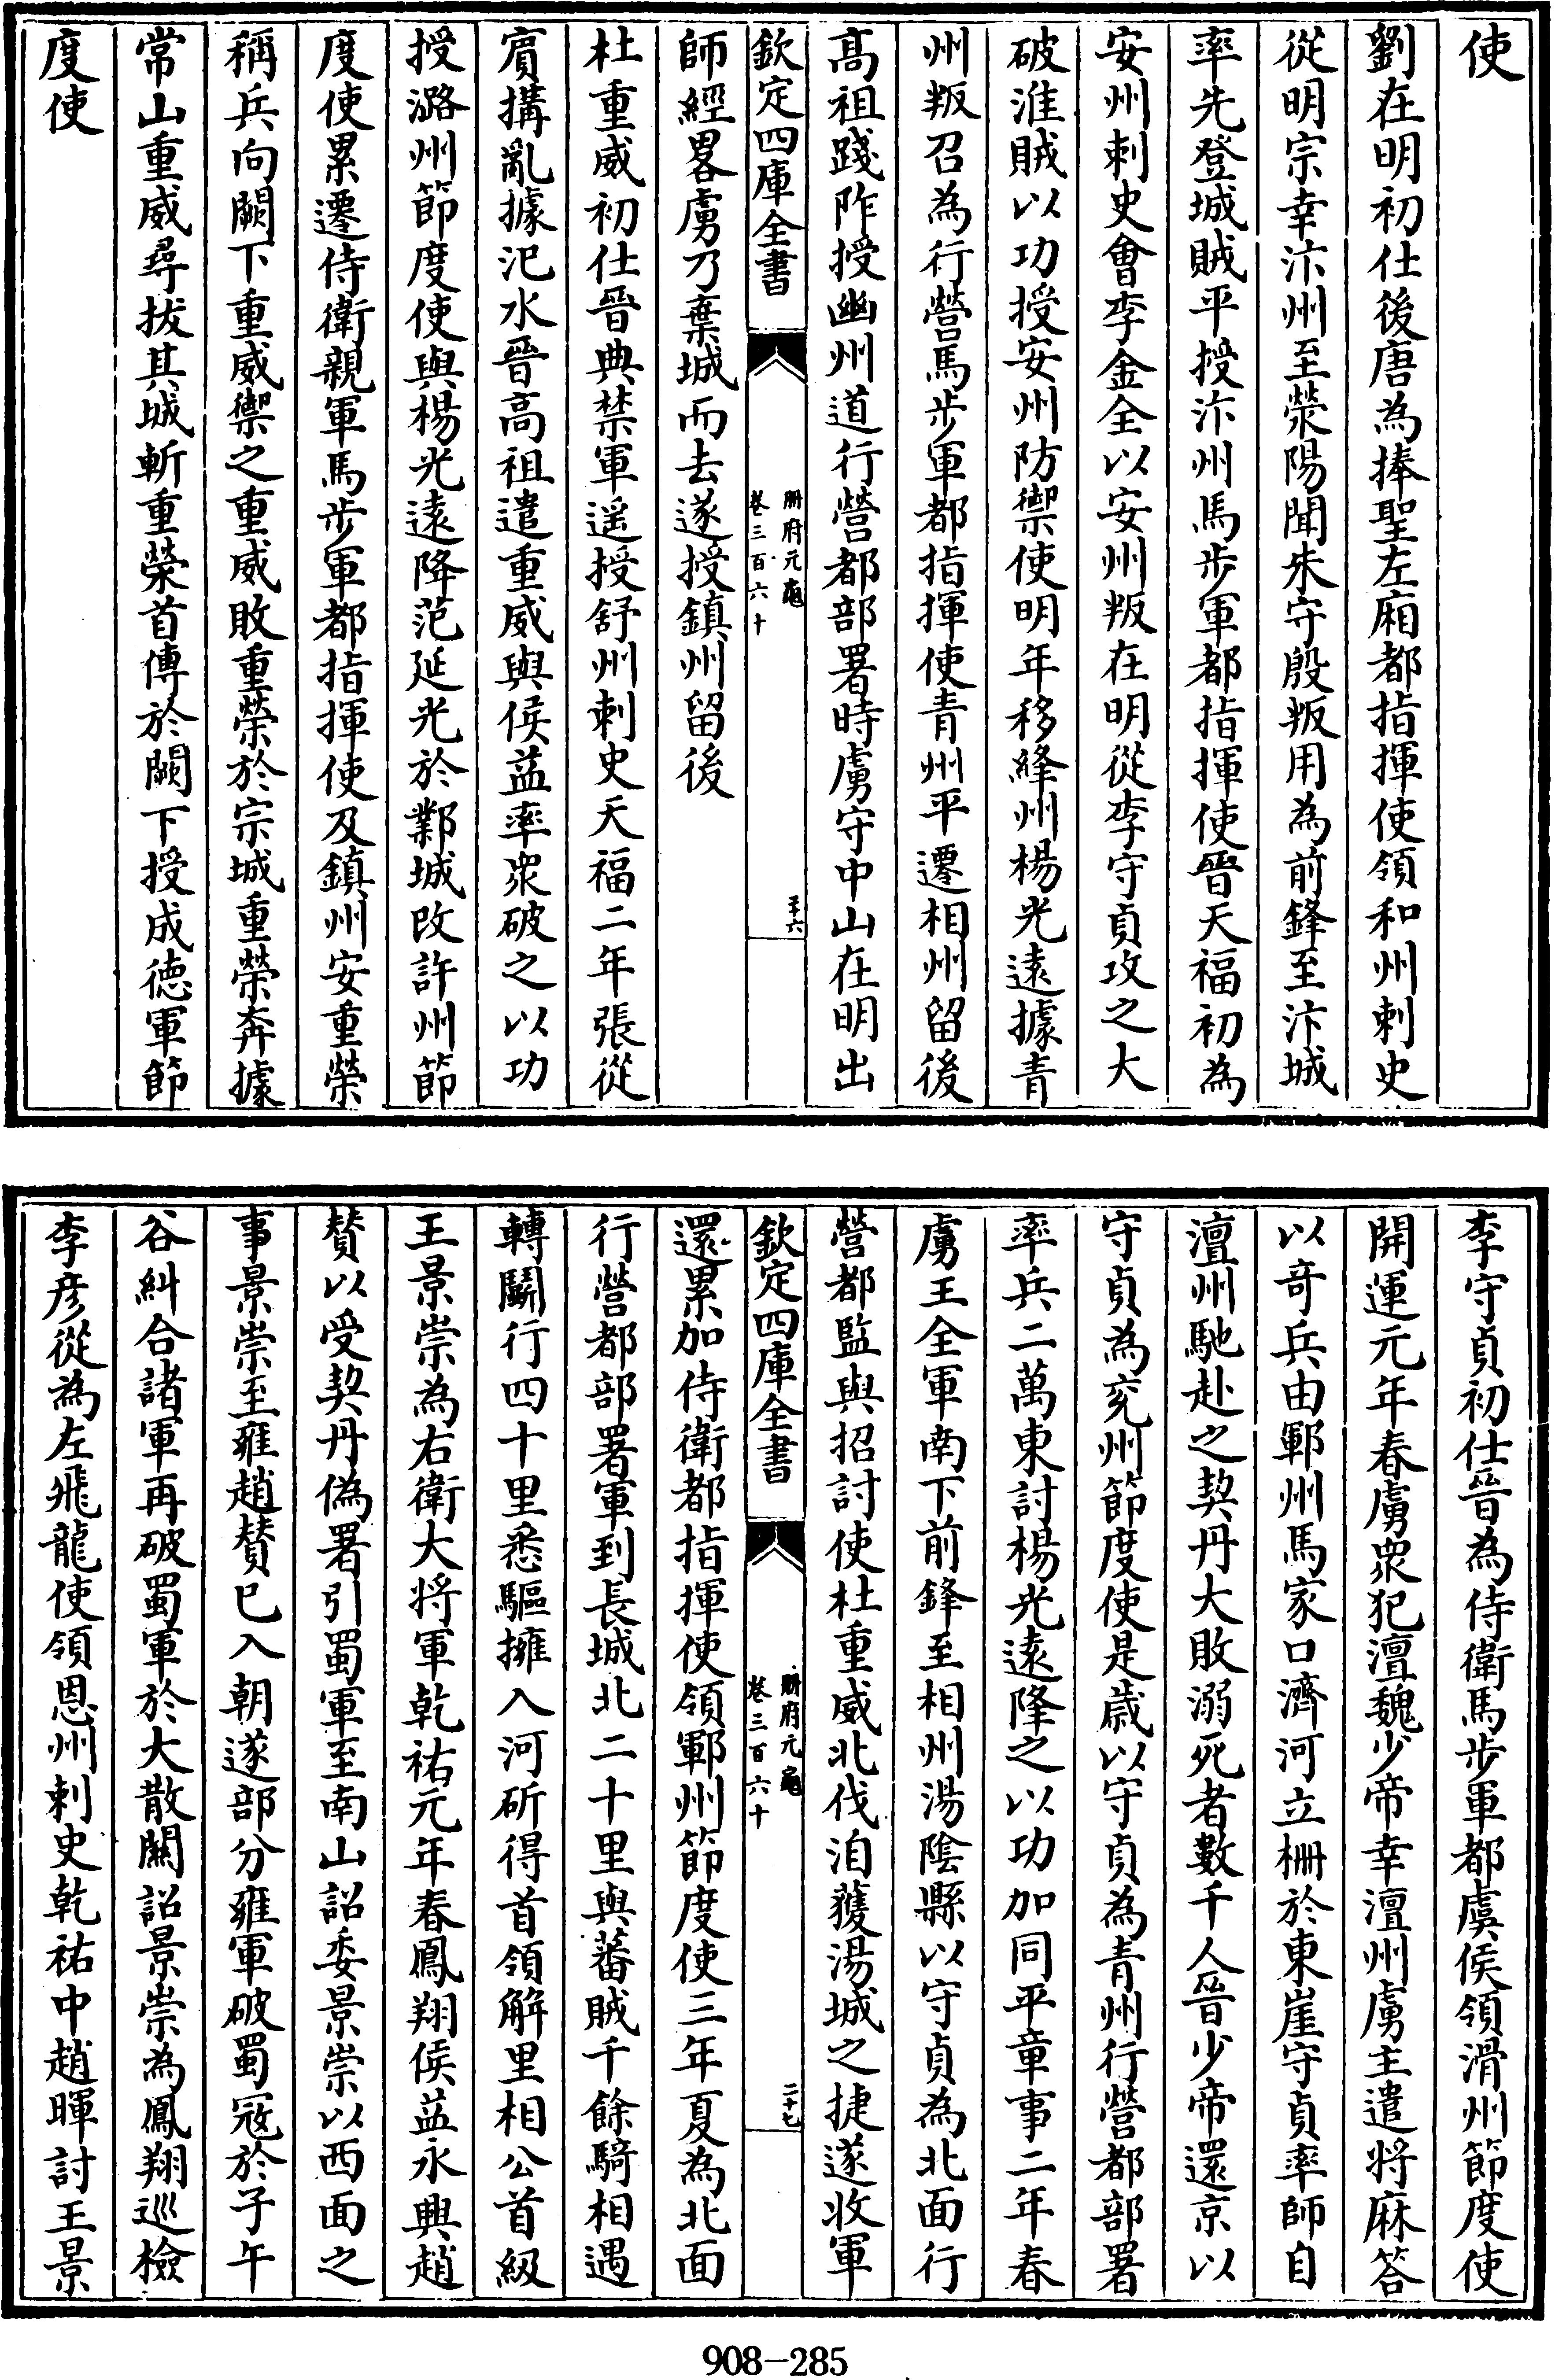 使
劉在明初仕後唐為捧聖左廂都指揮使領和州刺史
從明宗幸汴州至滎陽聞朱守殷叛用為前鋒至汴城
率先登城賊平授汴州馬步軍都指揮使晉天福初為
安州刺史會李金全以安州叛在明從李守貞攻之大
破淮賊以功授安州防禦使明年移絳州楊光遠據青
州叛召為行營馬步軍都指揮使青州平遷相州留後
髙祖踐阼授幽州道行營都部署時虜守中山在明出
欽定四庫全書
冊府元龜
卷三百六十
三十六
師經畧虜乃棄城而去遂授鎮州留後
杜重威初仕晉典禁軍遥授舒州刺史天福二年張從
賔搆亂據汜水晉高祖遣重威與侯益率衆破之以功
授潞州節度使與楊光遠降范延光於鄴城改許州節
度使累遷侍衛親軍馬步軍都指揮使及鎮州安重榮
稱兵向闕下重威禦之重威敗重榮於宗城重榮奔據
常山重威尋拔其城斬重榮首傳於闕下授成德軍節
度使
李守貞初仕晉為侍衛馬步軍都虞侯領滑州節度使
開運元年春虜衆犯澶魏少帝幸澶州虜主遣將麻答
以奇兵由鄆州馬家口濟河立柵於東崖守貞率師自
澶州馳赴之契丹大敗溺死者數千人晉少帝還京以
守貞為兖州節度使是歲以守貞為青州行營都部署
率兵二萬東討楊光遠降之以功加同平章事二年春
虜王全軍南下前鋒至相州湯陰縣以守貞為北面行
營都監與招討使杜重威北伐洎獲湯城之捷遂收軍
欽定四庫全書
冊府元龜
卷三百六十
三十七
還累加侍衛都指揮使領鄆州節度使三年夏為北面
行營都部署軍到長城北二十里與蕃賊千餘騎相遇
轉鬭行四十里悉驅擁入河斫得首領解里相公首級
王景崇為右衛大將軍乾祐元年春鳳翔侯益永興趙
贊以受契丹偽署引蜀軍至南山詔委景崇以西面之
事景崇至雍趙贊已入朝遂部分雍軍破蜀寇於子午
谷糾合諸軍再破蜀軍於大散關詔景崇為鳳翔巡檢
李彦從為左飛龍使領恩州刺史乾祐中趙暉討王景
908-285